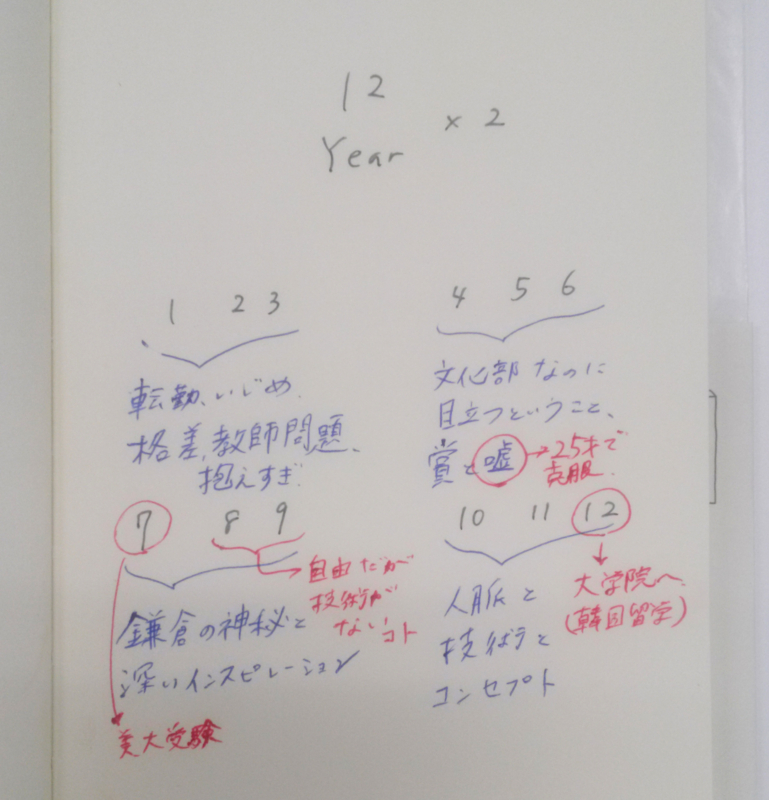 12
Year × 2
1 2 3
転勤、いじめ、
格差、教師問題、
抱えすぎ
4 5 6
文化部なのに
目立つということ、
賞と嘘→25才で
克服
7 8 9
自由だが
技術が
ないコト
鎌倉の神秘と
深いインスピレーション
美大受験
10 11 12
大学院へ
(韓国留学)
人脈と
技術と
コンセプト